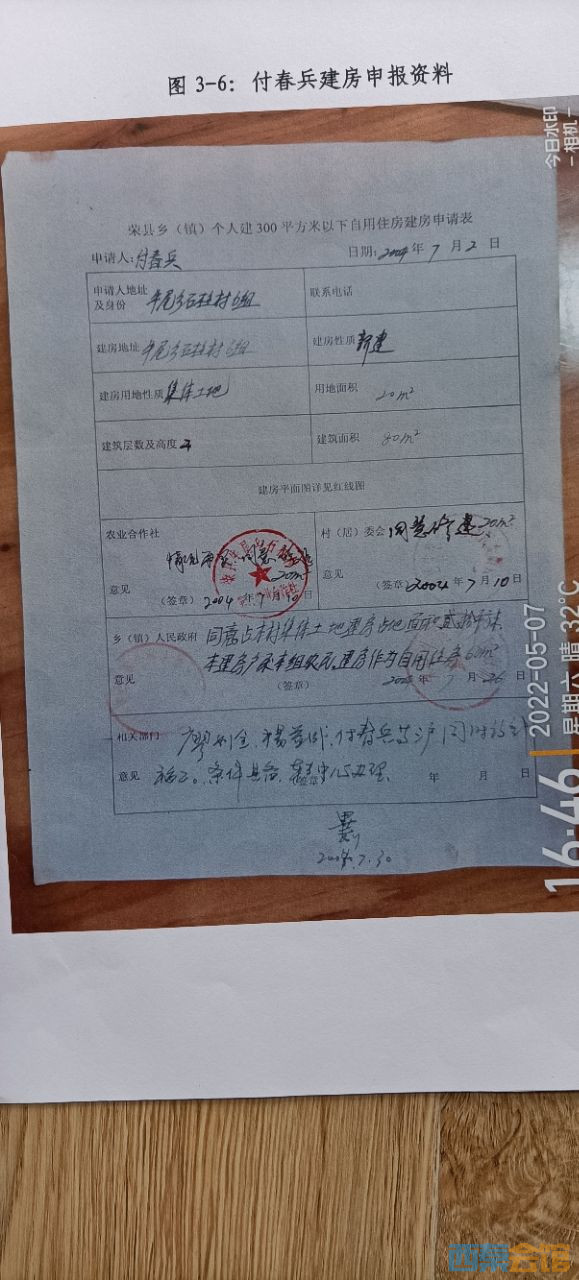 图 3-6: 付春兵建房申报资料
今日水印
-相机-
荣县乡（镇）个人建300平方米以下自用住房建房申请表
申请人:付春兵 日期:2004年7月2日
申请人地址及身份 牟尾乡石桂村6组 联系电话
建房地址 牟尾乡石桂村6组 建房性质 新建
建房用地性质 集体土地 用地面积 20m²
建筑层数及高度 建筑面积 80m²
建房平面图详见红线图
农业合作社 村（居）委会 同意修建20m²
情况 同意
20m²
意见 意见
（签章）2004年7月10日 （签章）2004年7月10日
乡（镇）人民政府 同意占本村集体土地建房占地面积贰拾平米
本建房户系本组农民,建房作为自用住房60m²
意见 （签章） 7月26日
相关部门 付春兵 同时
意见 条件具备 办理 年 月 日
2004.7.30
16:46
2022-05-07
星期六 晴 32℃
西祠会馆